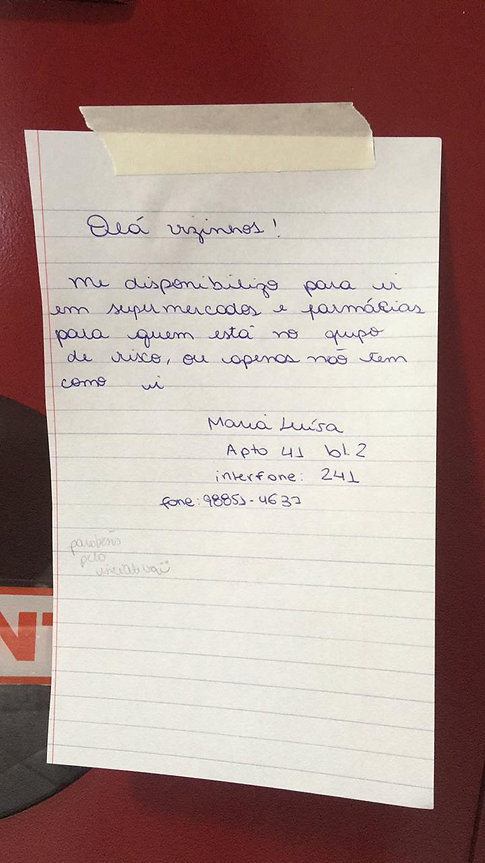 Olá vizinhos!
Me disponibilizo para ir
em supermercados e farmácias
para quem está no grupo
de risco, ou apenas não tem
como ir
Maria Luísa
Apto 41 bl.2
interfone: 241
parabéns
pela